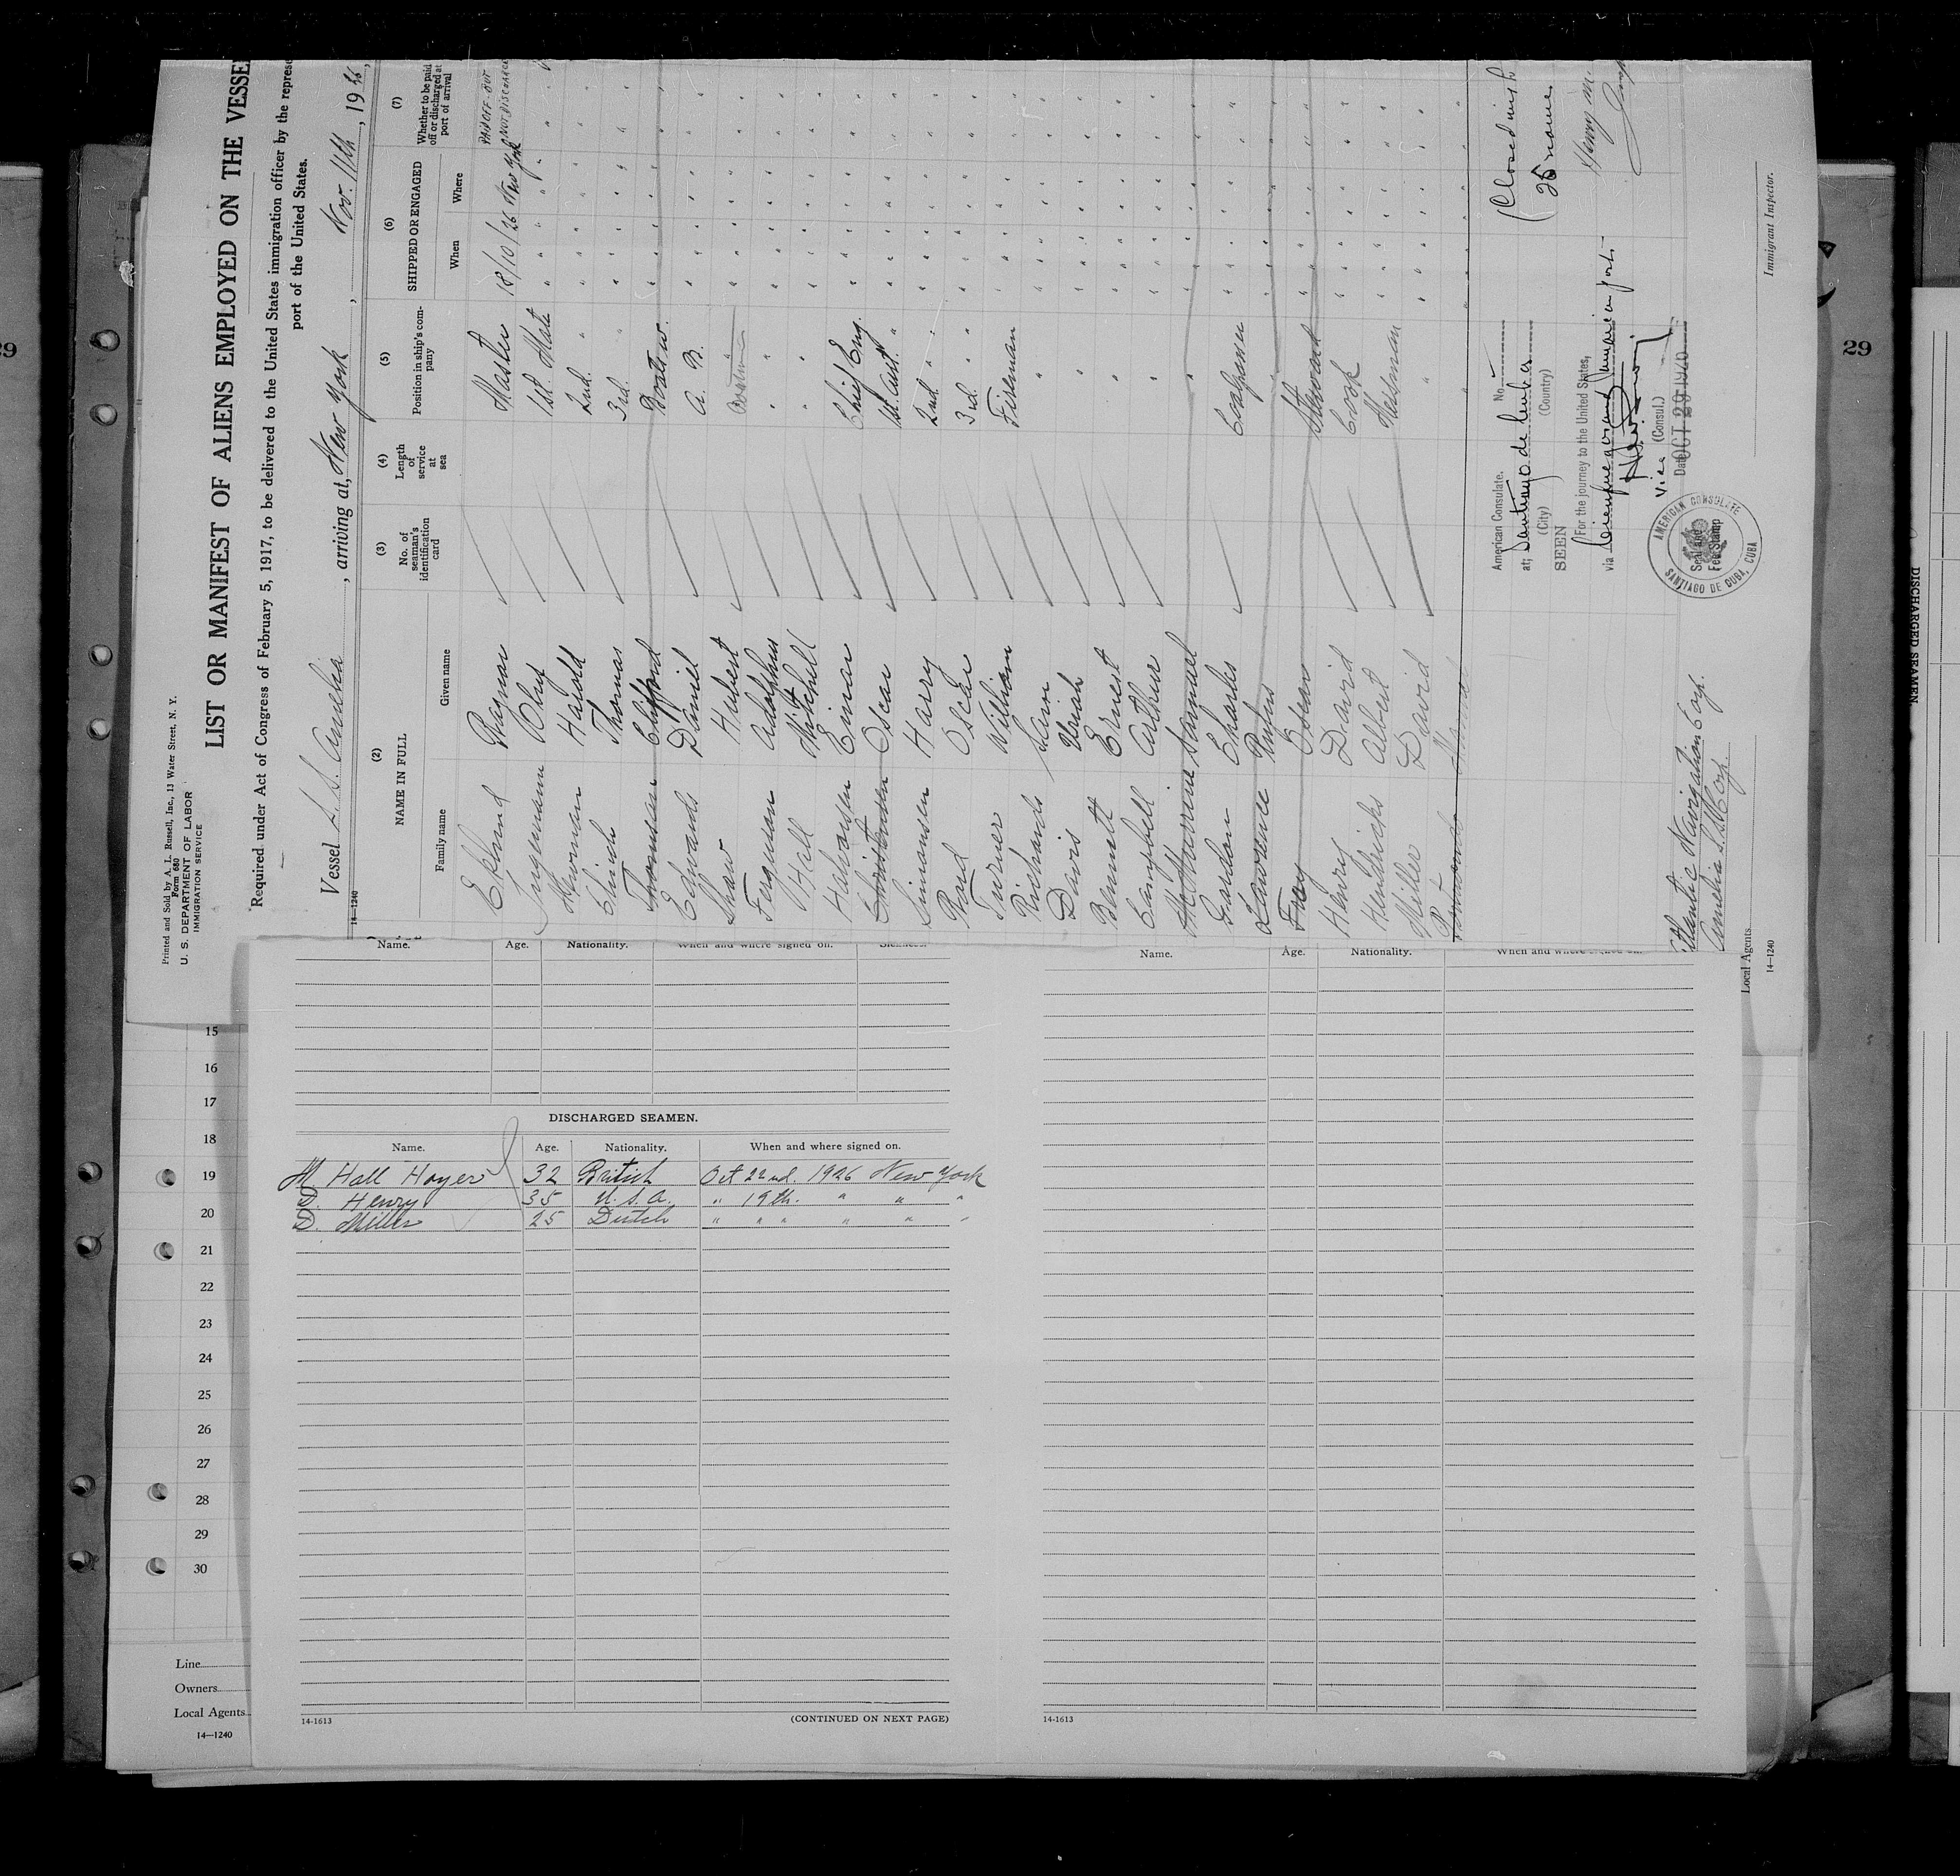 Printed and Sold by A. L. Russell, Inc., 13 Water Street, N. Y.
Form 680
U. S. DEPARTMENT OF LABOR
IMMIGRATION SERVICE
LIST OR MANIFEST OF ALIENS EMPLOYED ON THE VESSE
Required under Act of Congress of February 5, 1917, to be delivered to the United States immigration officer by the represe
port of the United States.
Vessel S.S. Amelia, arriving at, New York, Nov. 11th, 1926,
14—1240
(2) (3) (4) (5) (6) (7)
NAME IN FULL
No. of seaman's identification card
Length of service at sea
Position in ship's company
SHIPPED OR ENGAGED
Whether to be paid off or discharged at port of arrival
Family name Given name When Where
Eklund Ragnar Master 18/10/26 New York
Olry 1st. Mate " "
Newman Harold 2nd. " "
Thomas 3rd. " "
Thomson Clifford " "
Edwards Daniel A. B. " "
Shaw Hubert " "
Ferguson Adolphus " " "
Hall Mitchell " " "
Halvorsen Einar Chief Eng. " "
Oscar 1st. Asst. " "
Simonsen Harry 2nd. " " "
Oscar 3rd. " " "
Turner William Fireman " "
Richards " " "
Davis Uriah " " "
Bennett Ernest " " "
Campbell Arthur " " "
Samuel " "
Gordon Charles " "
Lawrence Rufus " " "
Steward " "
Henry David Cook " "
Hendricks Albert Messman " "
Miller David " " "
American Consulate. No
at; Santiago de Cuba
(City) (Country)
SEEN
For the journey to the United States,
via
Vice (Consul.)
Date OCT 29 1926
AMERICAN CONSULATE
Seal and
Fee Stamp
SANTIAGO DE CUBA, CUBA
(Closed with
26 names
Henry M.
Atlantic Navigation Corp.
Amelia S.S. Corp.
Local Agents
14—1240
Immigrant Inspector.
29
29
DISCHARGED SEAMEN.
Name. Age. Nationality. When and where signed on.
Name. Age. Nationality. When and where signed on.
15
16
17
18
19
20
21
22
23
24
25
26
27
28
29
30
Line
Owners
Local Agents
14—1240
DISCHARGED SEAMEN.
Name. Age. Nationality. When and where signed on.
M Hall Hoyer 32 British Oct 22nd. 1926 New York
D. Henry 35 U.S.A. " 19th. " " "
D. Miller 25 Dutch " " " " " "
14-1613
(CONTINUED ON NEXT PAGE)
14-1613